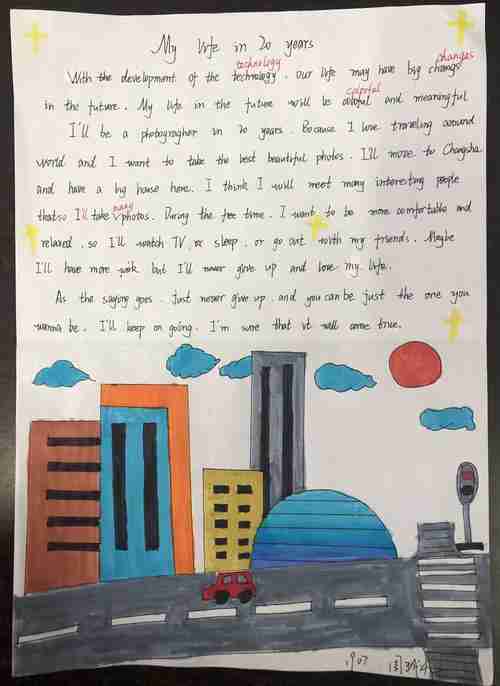 My life in 20 years
technology changes
With the development of the technology, our life may have big changs
colorful
in the future. My life in the future will be and meaningful
I'll be a photographer in 20 years. Because I love traveling around
world and I want to take the best beautiful photos. I'll move to Changsha
and have a big house here. I think I will meet many interesting people
many
that so I'll take photos. During the free time, I want to be more comfortable and
relaxed, so I'll watch TV, or sleep, or go out with my friends. Maybe
I'll have more work but I'll never give up and love my life.
As the saying goes, just never give up and you can be just the one you
wanna be. I'll keep on going. I'm sure that it will come true.
1907